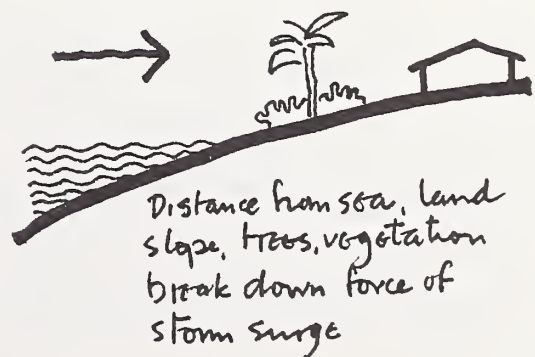 Distance from sea, land
slope, trees, vegetation
break down force of
storm surge